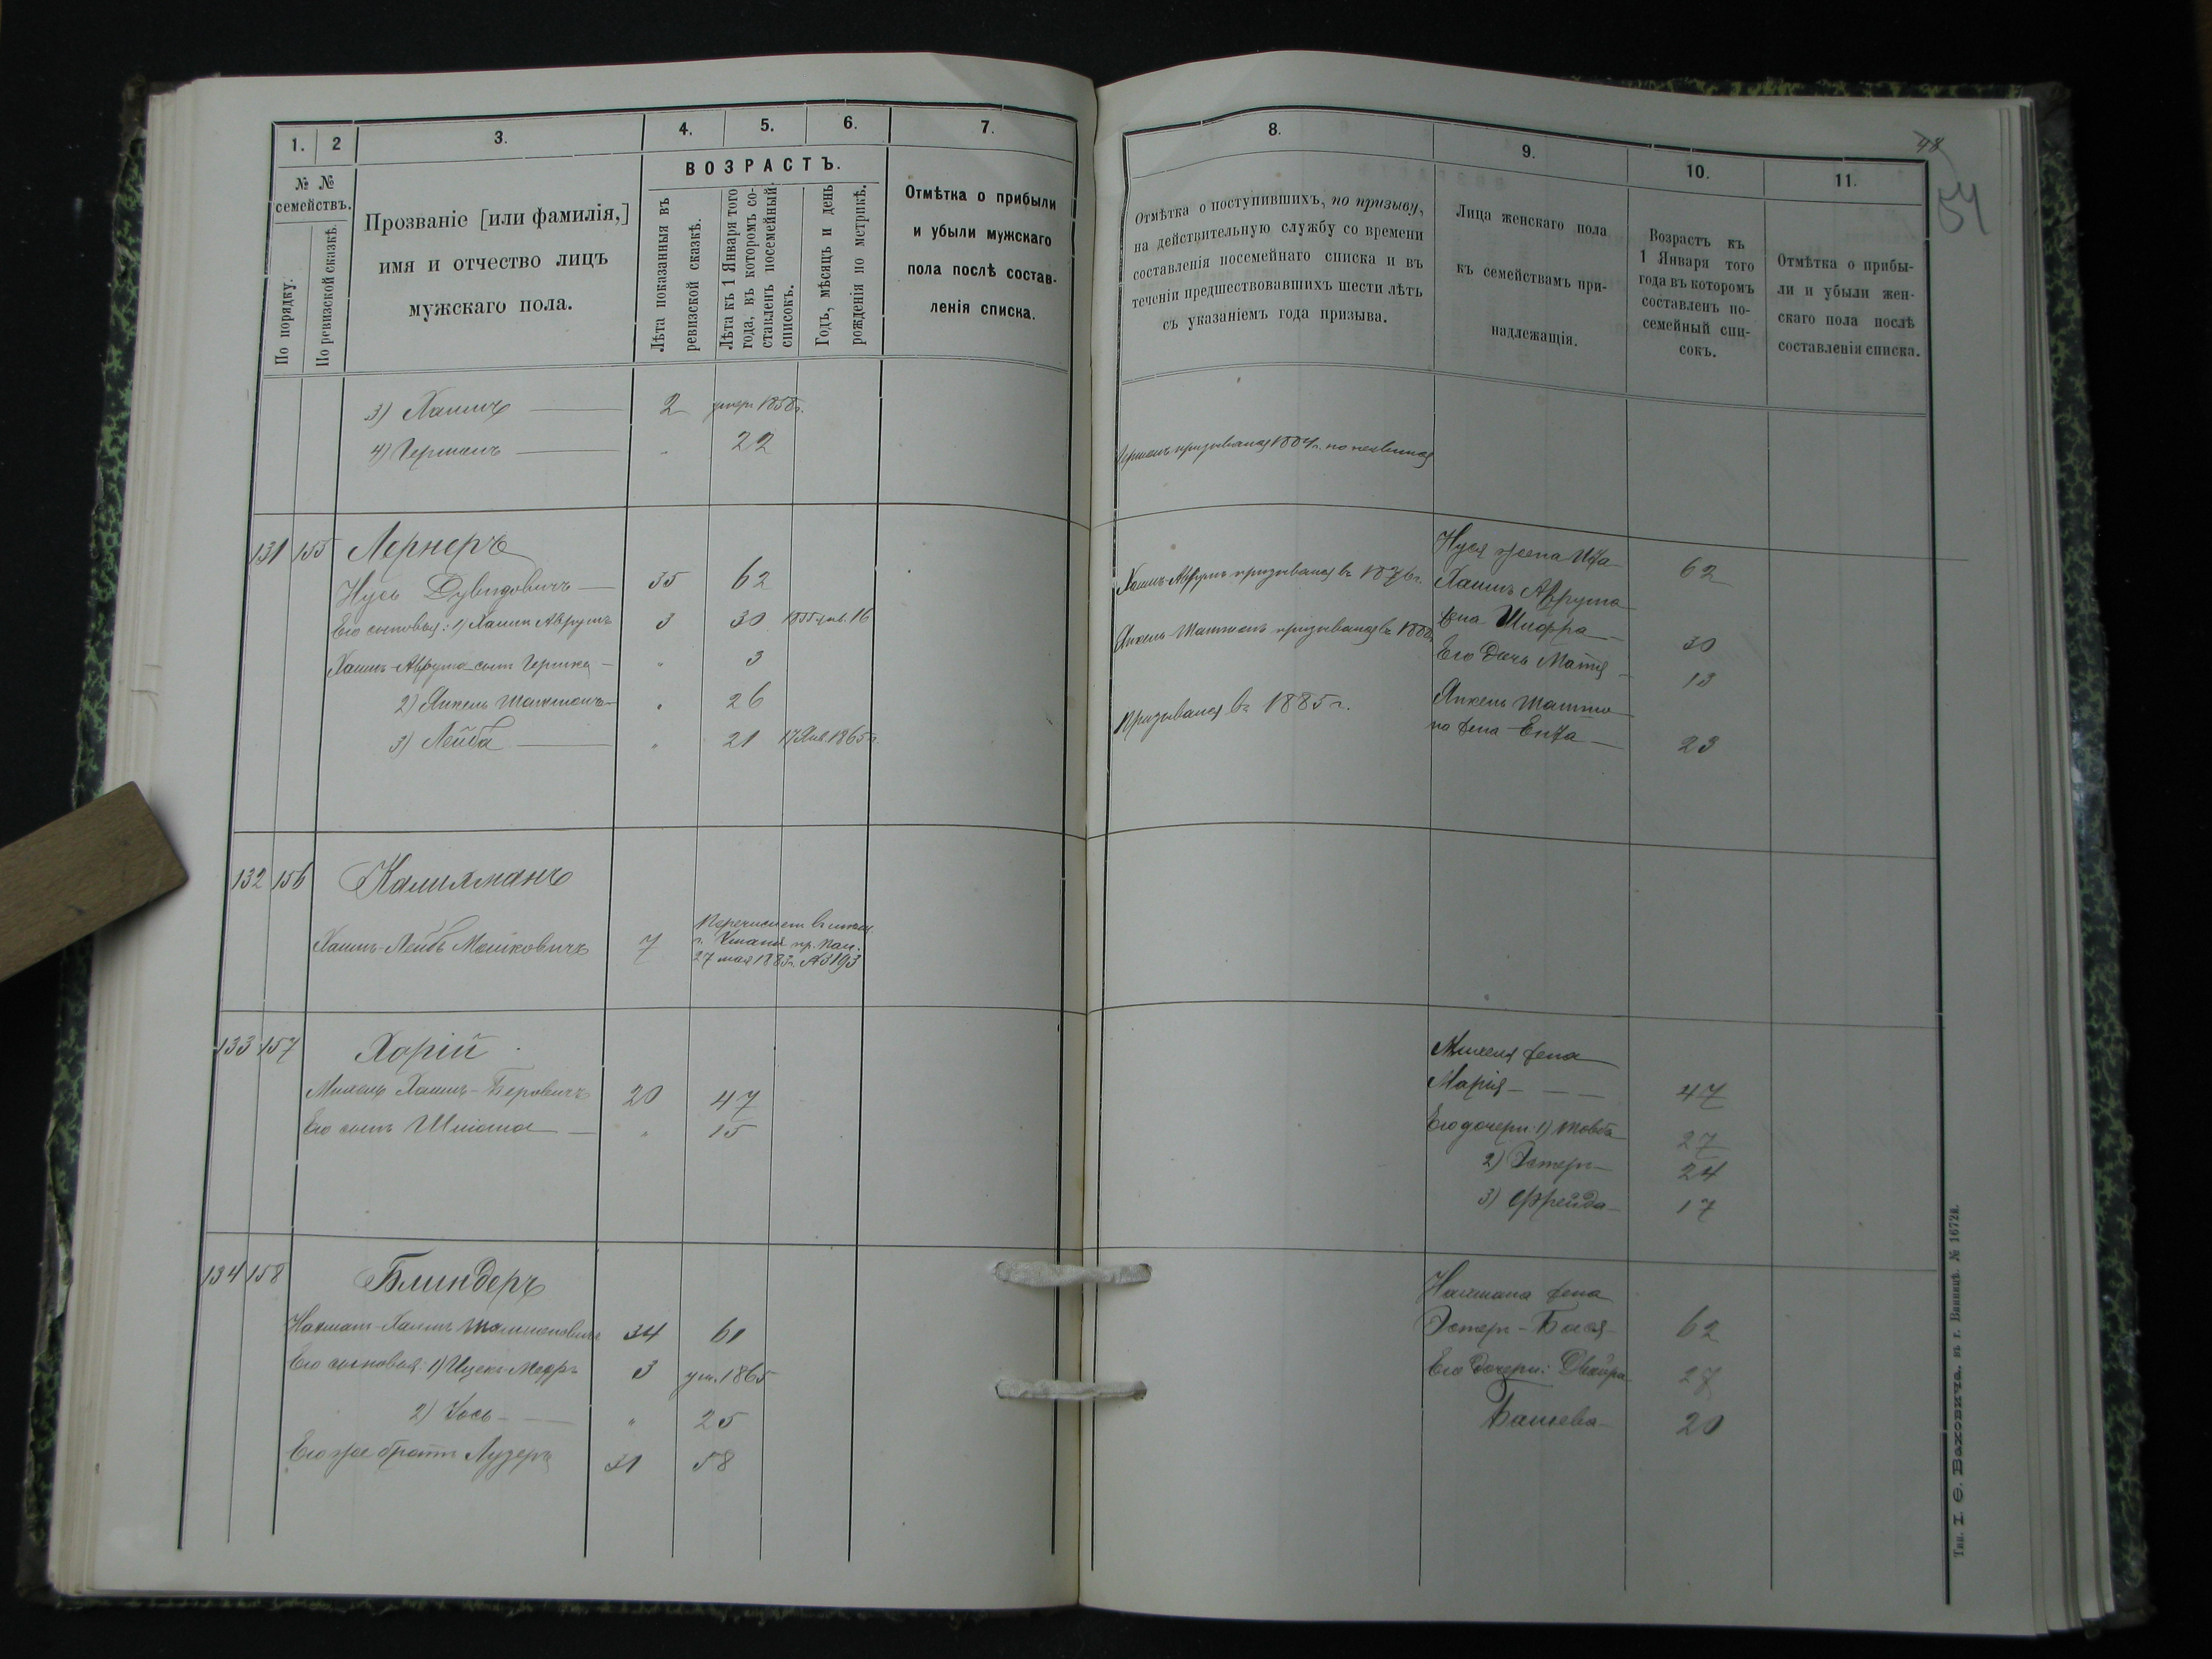 1. 2 3. 4. 5. 6. 7.
№ № семействъ.
По порядку.
По ревизской сказкѣ.
Прозваніе [или фамилія,]
имя и отчество лицъ
мужскаго пола.
ВОЗРАСТЪ.
Лѣта показанныя въ
ревизской сказкѣ.
Лѣта къ 1 Января того
года, въ которомъ со-
ставленъ посемейный
списокъ.
Годъ, мѣсяцъ и день
рожденія по метрикѣ.
Отмѣтка о прибыли
и убыли мужскаго
пола послѣ состав-
ленія списка.
3) Хаимъ 2 умеръ 1858 г.
4) Германъ " 22
131 155 Лернеръ
Нусь Дувидовичъ 35 62
Его сыновья: 1) Хаимъ Аврумъ 3 30 1855 янв. 16
Хаимъ-Аврума сынъ Гершка " 3
2) Янкель " 26
3) Лейба " 21 17 Янв. 1865 г.
132 156 Калихманъ
Хаимъ-Лейбъ Мошковичъ 7
Перечисленъ въ
г. Умани пр. Пал.
27 мая 1883 г. №3193
133 157 Хорій
Михель Хаимъ-Беровичъ 20 47
Его сынъ 15
134 158 Блиндеръ
Нахманъ-Хаимъ 34 61
Его сыновья: 1) Ицекъ-Мееръ 3 ум. 1865
2) Кось " 25
Его же братъ Лузеръ 31 58
8. 9. 10. 11.
48
54
Отмѣтка о поступившихъ, по призыву,
на дѣйствительную службу со времени
составленія посемейнаго списка и въ
теченіи предшествовавшихъ шести лѣтъ
съ указаніемъ года призыва.
Лица женскаго пола
къ семействамъ при-
надлежащія.
Возрастъ къ
1 Января того
года въ которомъ
составленъ по-
семейный спи-
сокъ.
Отмѣтка о прибы-
ли и убыли жен-
скаго пола послѣ
составленія списка.
Германъ призывался 1884 г. по
Нуся жена Ита 62
Хаимъ-Аврумъ призывался въ 1876 г.
Хаимъ Аврума
жена Шифра 30
Янкель призывался въ 1880
Его дочьМатя 13
Янкель
жена Ента 23
Призывался въ 1885 г.
Михеля жена
Марія 47
Его дочери: 1) Товба 27
2) Эстеръ 24
3) Фрейда 17
Нахмана жена
Эстеръ-Бася 62
Его дочери: Двойра 27
Башева 20
Тип. I. Ѳ. Ваховича. въ г. Винницѣ. № 1672й.